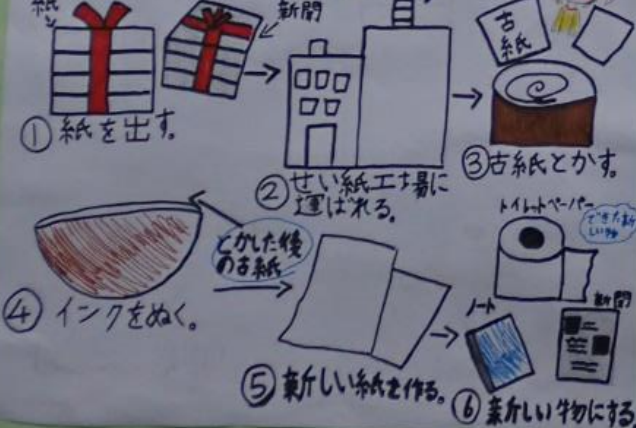 紙
新聞
①紙を出す。
②せい紙工場に
運ばれる。
古
紙
③古紙とかす。
④インクをぬく。
とかした後
の古紙
⑤新しい紙を作る。
トイレットペーパー
できた新
しい物
ノート
新聞
⑥新しい物にする